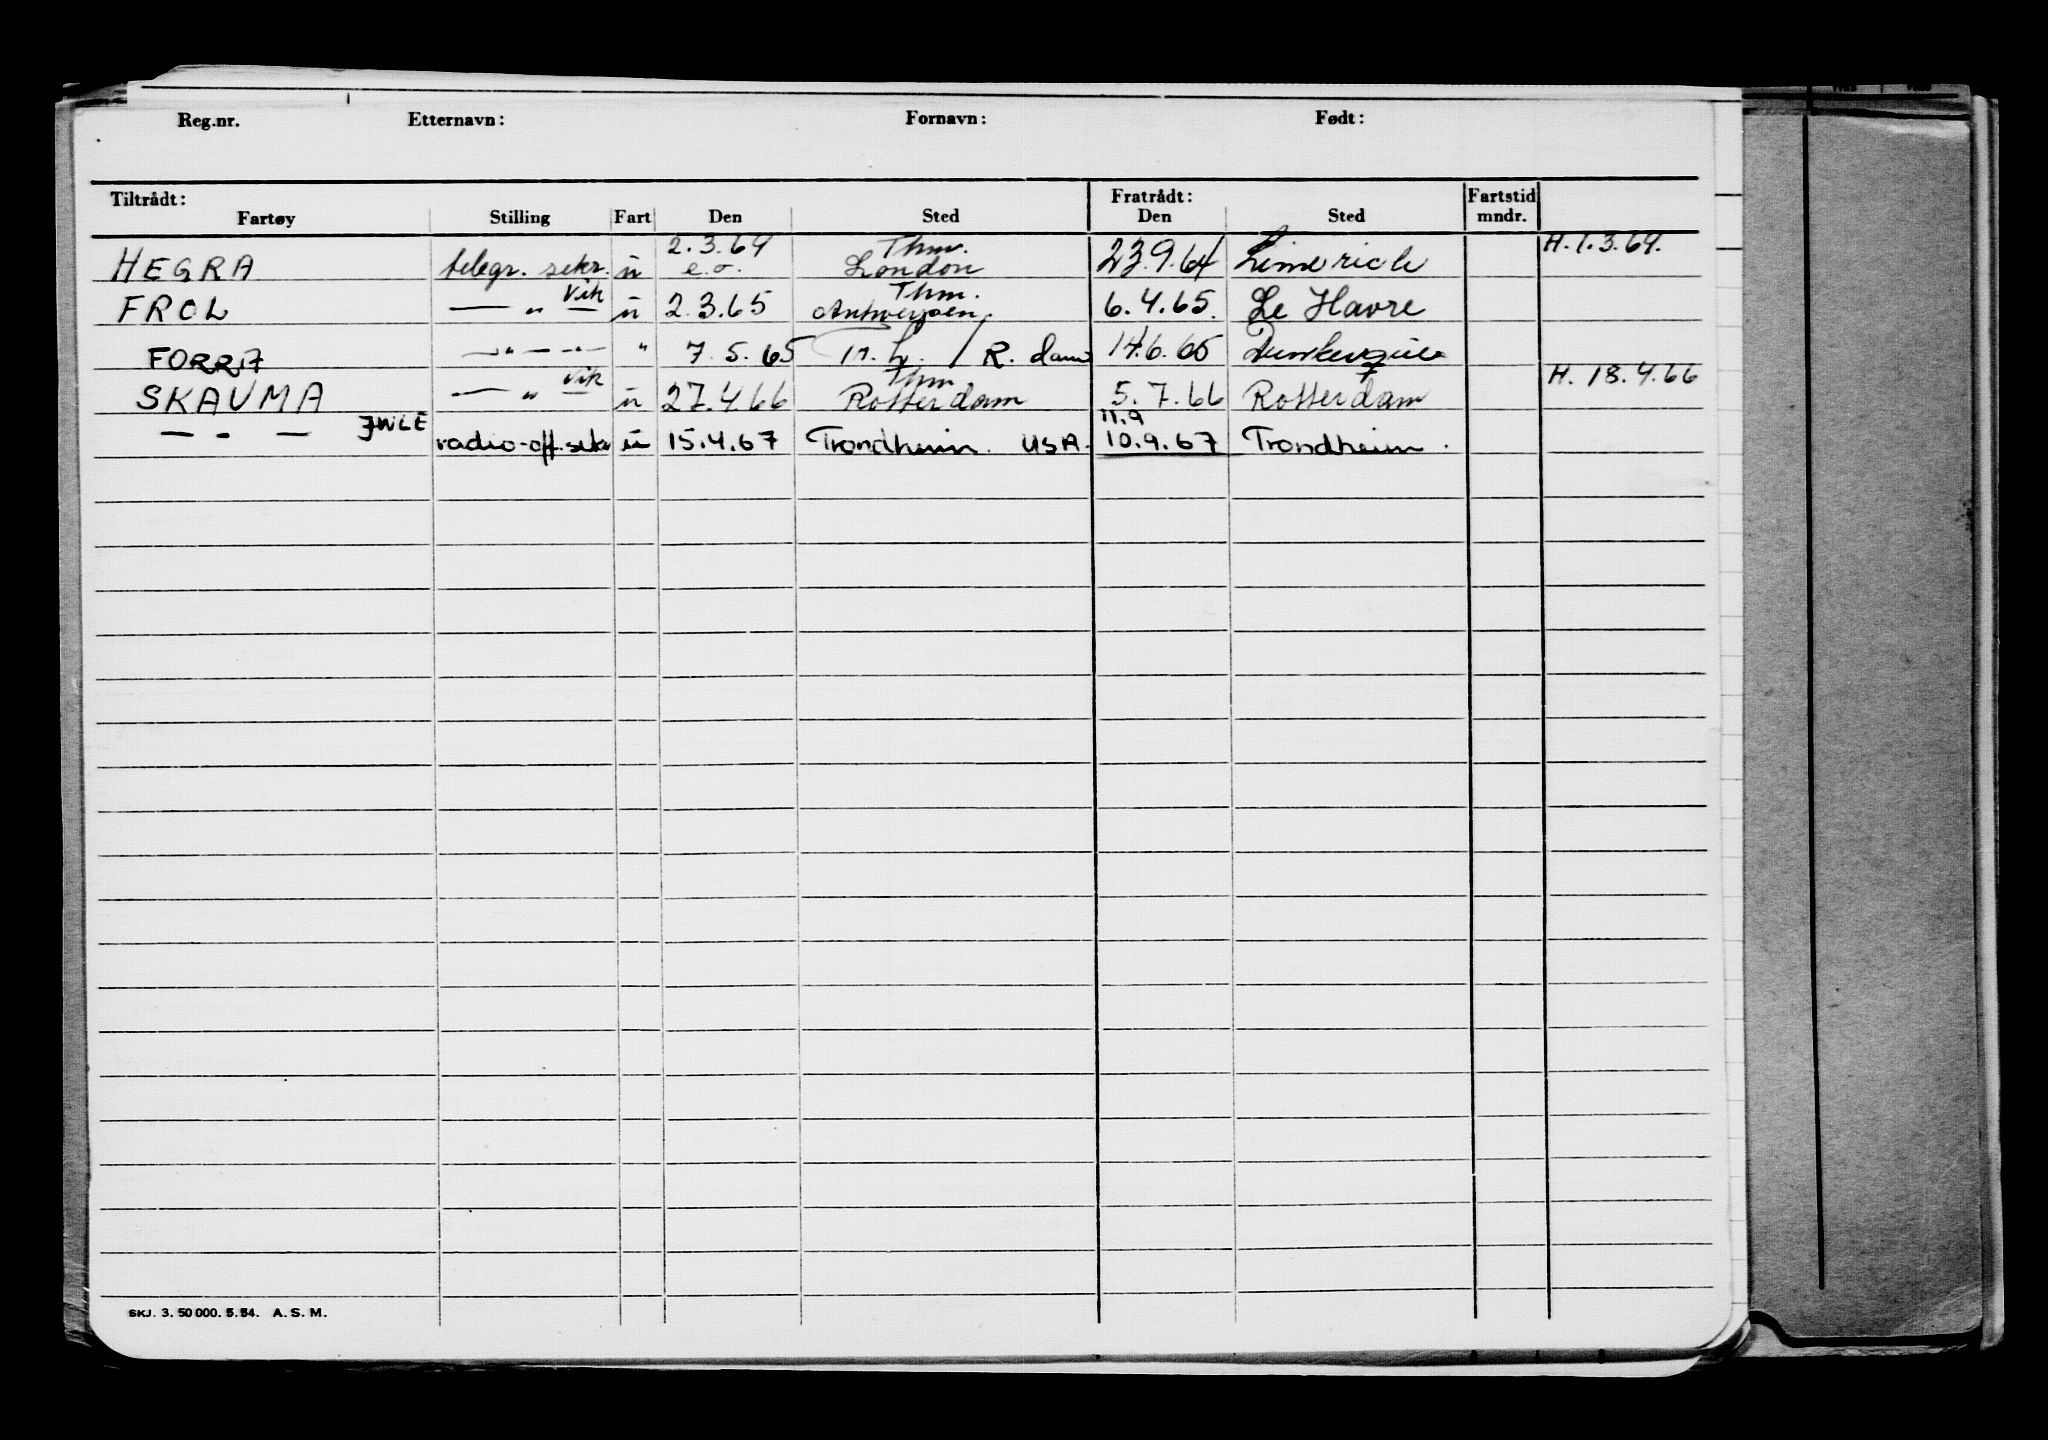 Reg.nr. Etternavn: Fornavn: Født:
Tiltrådt: Fratrådt: Fartstid
Fartøy Stilling Fart Den Sted Den Sted mndr.
2.3.64 Thm. H. 1.3.64.
HEGRA telegr. sekr. u e.o. London 23.9.64 Limerick
Vik Thm.
FROL — " — u 2.3.65 Antwerpen 6.4.65. Le Havre
FORRA — " — " — " 7.5.65 / R. dam 14.6.65 Dunkerque
Vik Thm H. 18.4.66
SKAUMA — " — u 27.4.66 Rotterdam 5.7.66 Rotterdam
JWLE 11.9
— " — radio-off. sekr u 15.4.67 Trondheim. USA. 10.9.67 Trondheim.
SKJ. 3. 50 000. 5. 54. A. S. M.